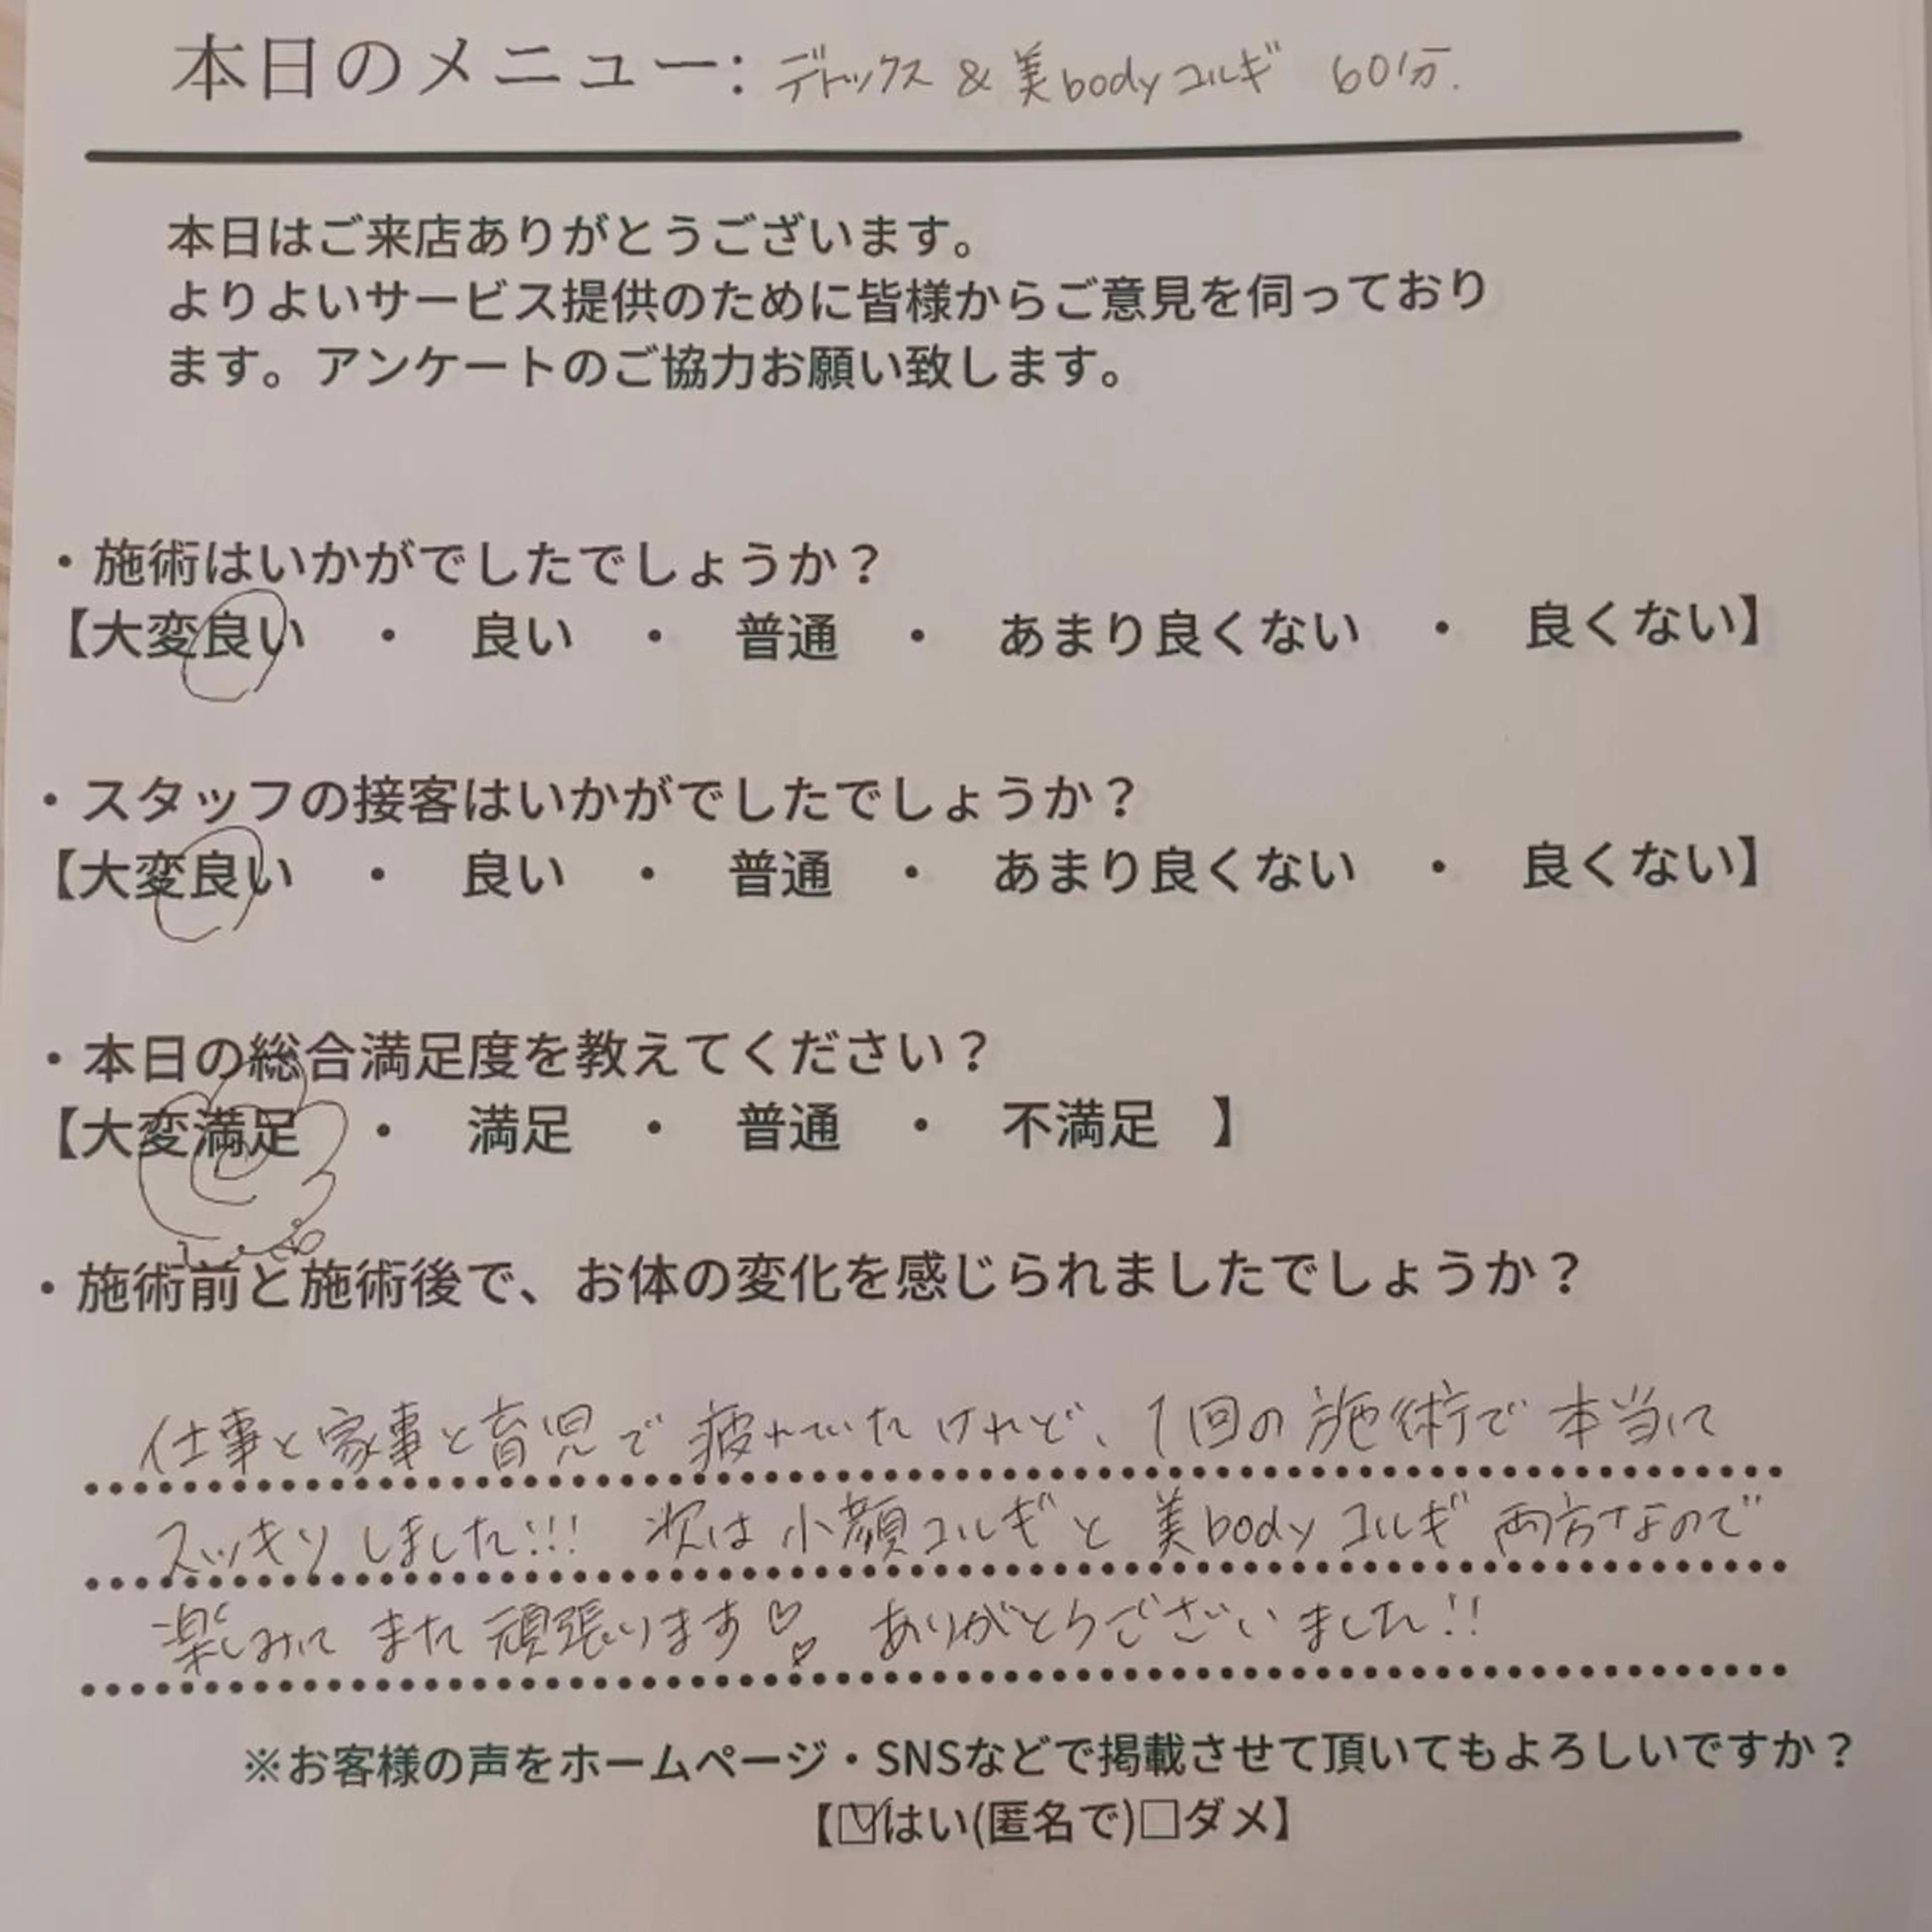 本日のメニュー: デトックス & 美bodyコルギ 60分.
本日はご来店ありがとうございます。
よりよいサービス提供のために皆様からご意見を伺っており
ます。アンケートのご協力お願い致します。
・施術はいかがでしたでしょうか？
【大変良い ・ 良い ・ 普通 ・ あまり良くない ・ 良くない】
・スタッフの接客はいかがでしたでしょうか？
【大変良い ・ 良い ・ 普通 ・ あまり良くない ・ 良くない】
・本日の総合満足度を教えてください？
【大変満足 ・ 満足 ・ 普通 ・ 不満足 】
・施術前と施術後で、お体の変化を感じられましたでしょうか？
仕事と家事と育児で疲れていたけれど、1回の施術で本当に
スッキリしました!!! 次は小顔コルギと美bodyコルギ両方なので
楽しみにまた頑張ります♡♡ ありがとうございました!!
※お客様の声をホームページ・SNSなどで掲載させて頂いてもよろしいですか？
【☑はい(匿名で)□ダメ】